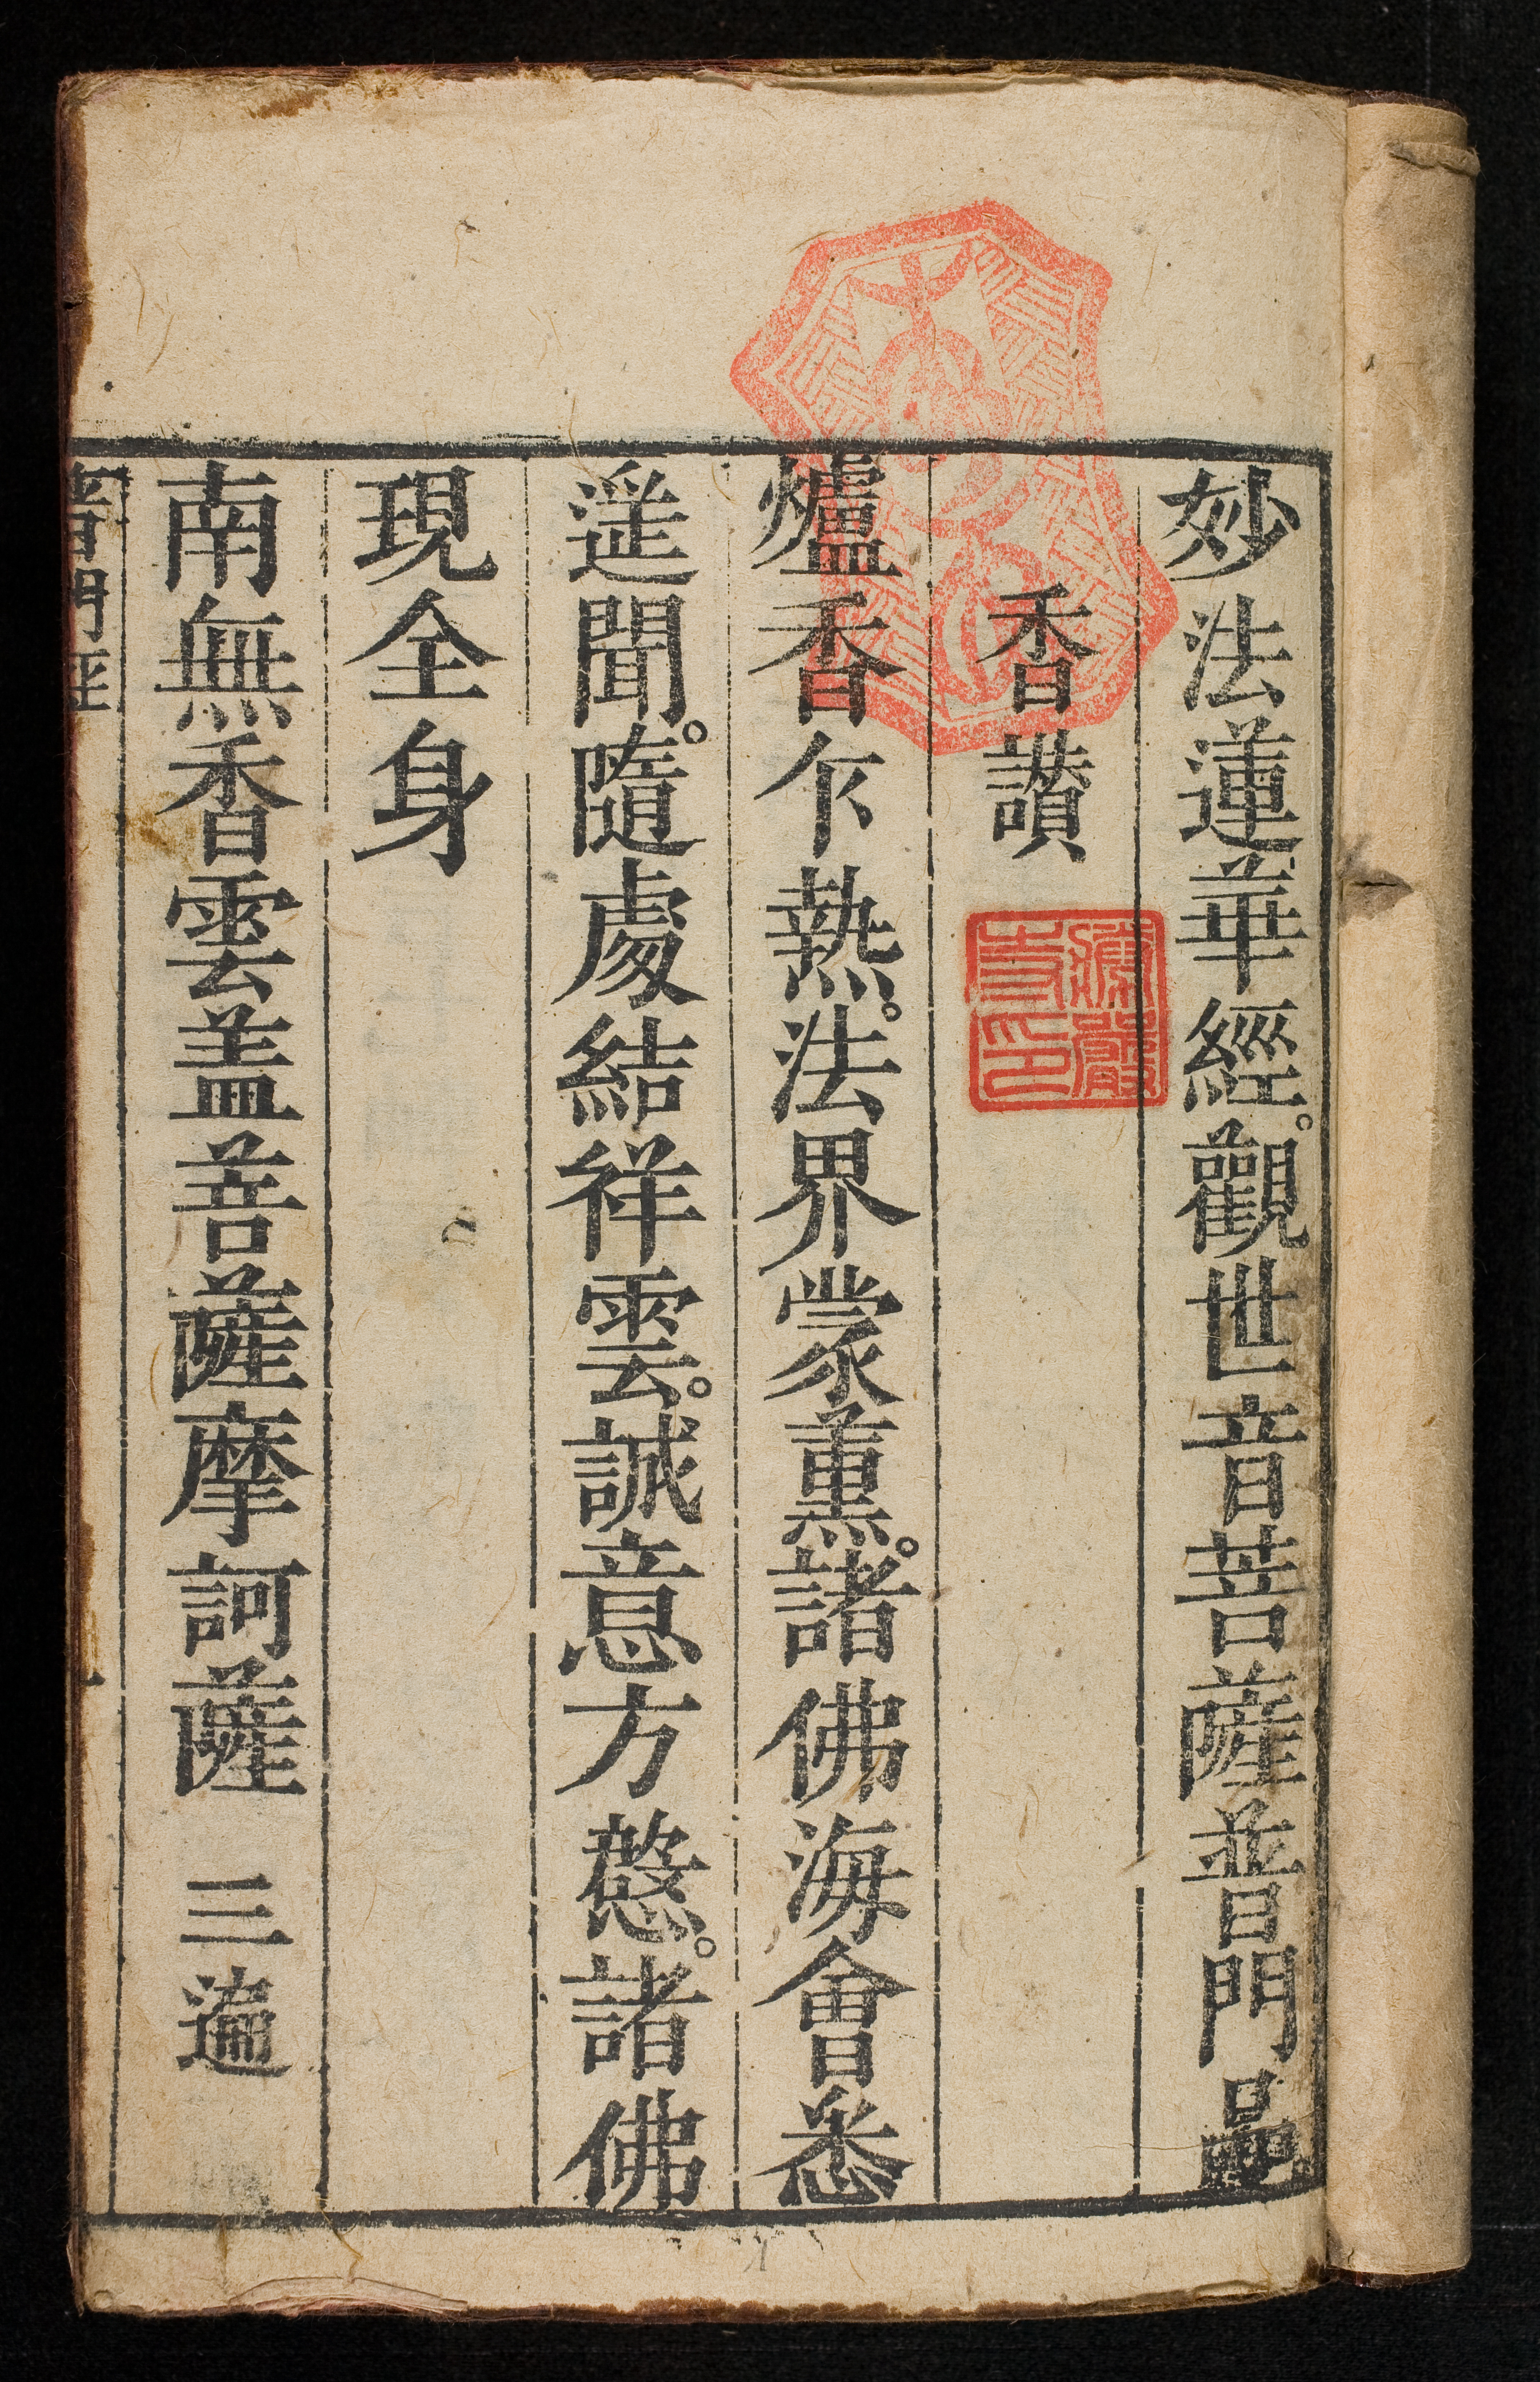 妙法蓮華經。觀世音菩薩普門品
香讚
爐香乍熱。法界蒙薰。諸佛海會悉
遥聞。隨處結祥雲。誠意方慇。諸佛
現全身
南無香雲盖菩薩摩訶薩 三遍
普門經